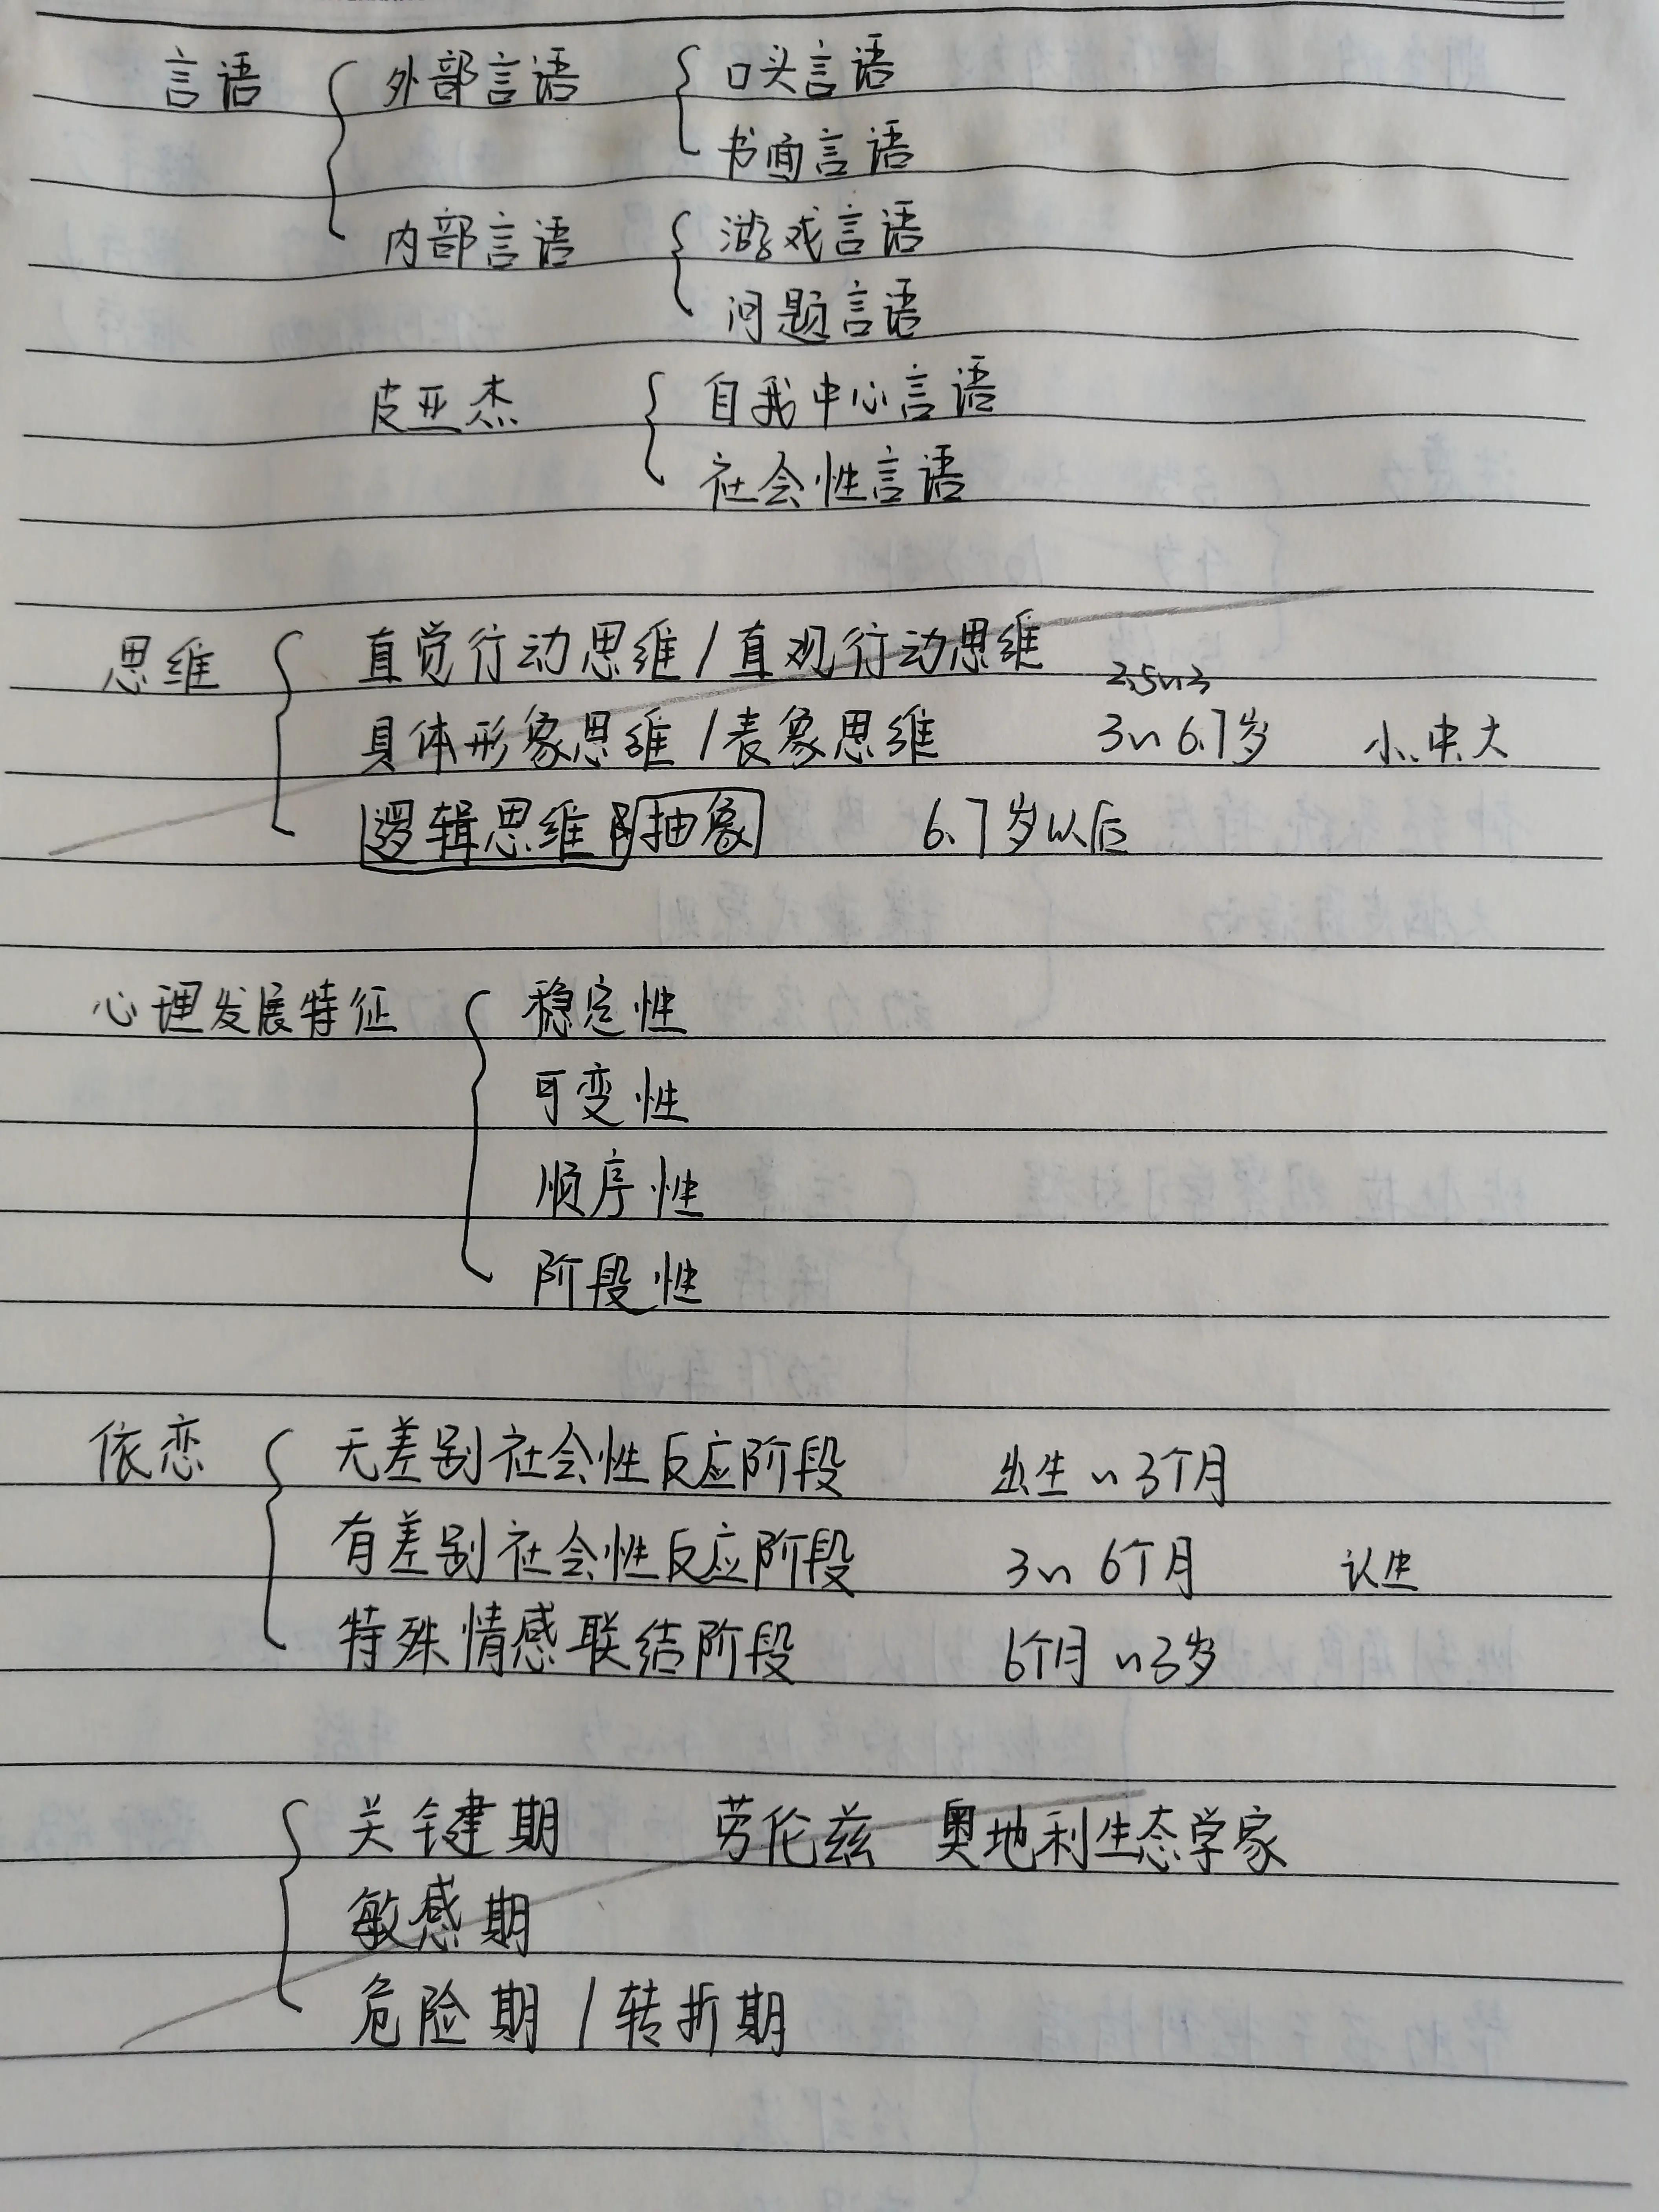 言语 外部言语 口头言语
书面言语
内部言语 游戏言语
问题言语
皮亚杰 自我中心言语
社会性言语
思维 直觉行动思维/直观行动思维
2.5~3
具体形象思维/表象思维 3~6.7岁 小.中.大
逻辑思维 抽象 6.7岁以后
心理发展特征 稳定性
可变性
顺序性
阶段性
依恋 无差别社会性反应阶段 出生~3个月
有差别社会性反应阶段 3~6个月 认生
特殊情感联结阶段 6个月~3岁
关键期 劳伦兹 奥地利生态学家
敏感期
危险期/转折期